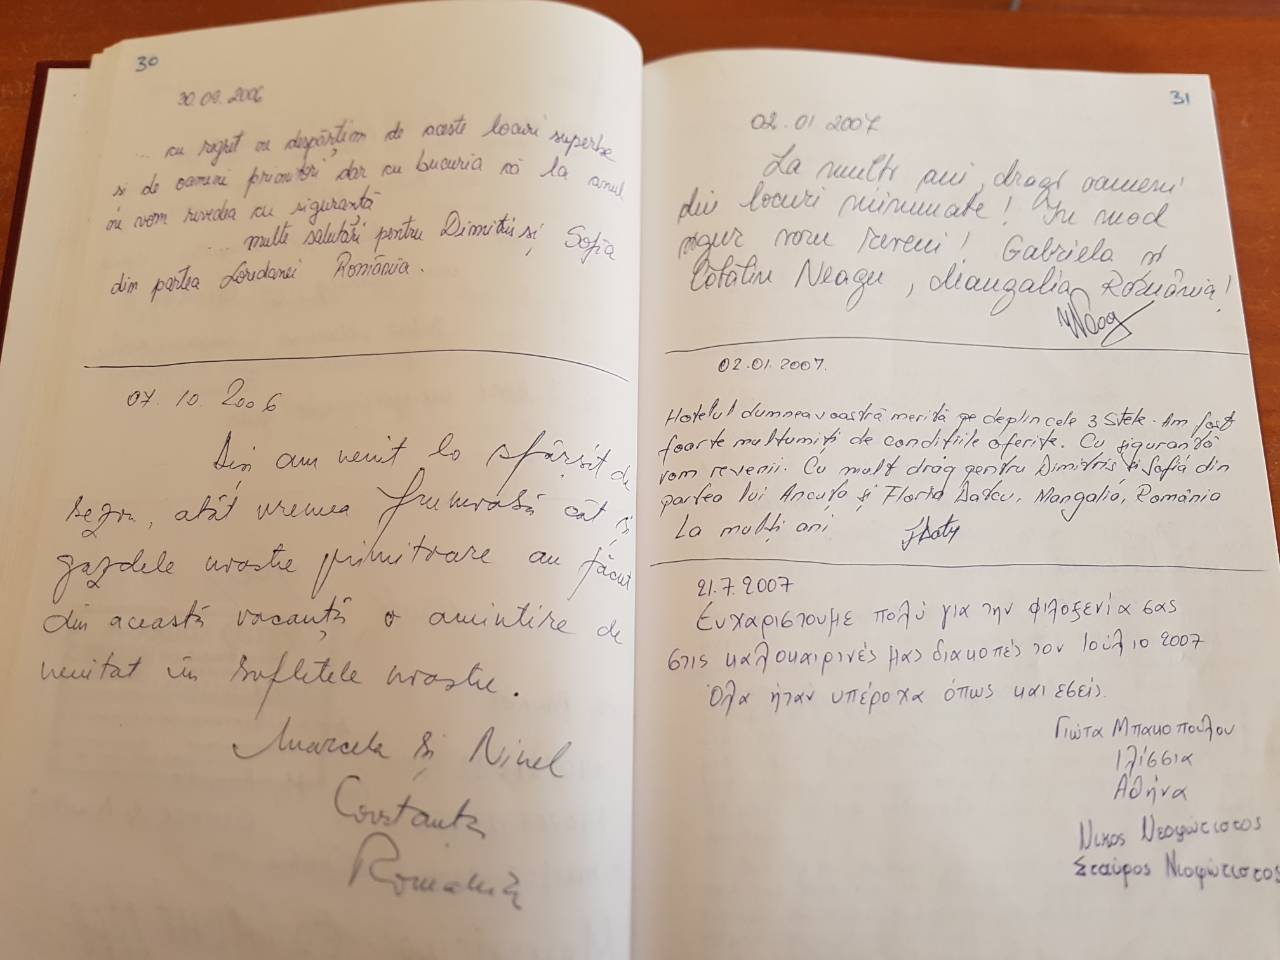 30
30.09.2006
... cu regret ne despărțim de aceste locuri superbe
și de oameni primitori dar cu bucuria că la anul
ne vom revedea cu siguranță
... multe salutări pentru Dimitris și Sofia
din partea Loredanei România.
07.10.2006
Deși am venit la sfârșit de
sezon, atât vremea frumoasă cât și
gazdele noastre primitoare au făcut
din această vacanță o amintire de
neuitat în sufletele noastre.
Marcela și Ninel
Constanța
România
31
02.01.2007
La mulți ani, dragi oameni
din locuri minunate! În mod
sigur vom reveni! Gabriela și
Cătălin Neagu, Mangalia, România!
02.01.2007.
Hotelul dumneavoastră merită pe deplin cele 3 stele. Am fost
foarte mulțumiți de condițiile oferite. Cu siguranță
vom revenii. Cu mult drag pentru Dimitris și Sofia din
partea lui Ancuța și Florin Datcu, Mangalia, România
La mulți ani
21.7.2007
Ευχαριστουμε πολύ για την φιλοξενία σας
στις καλοκαιρινές μας διακοπές τον Ιούλιο 2007
Όλα ήταν υπέροχα όπως και εσείς.
Γιώτα Μπακοπούλου
Ιλίσσια
Αθήνα
Νικος Νεοφώτιστος
Σταύρος Νιοφώτιστος